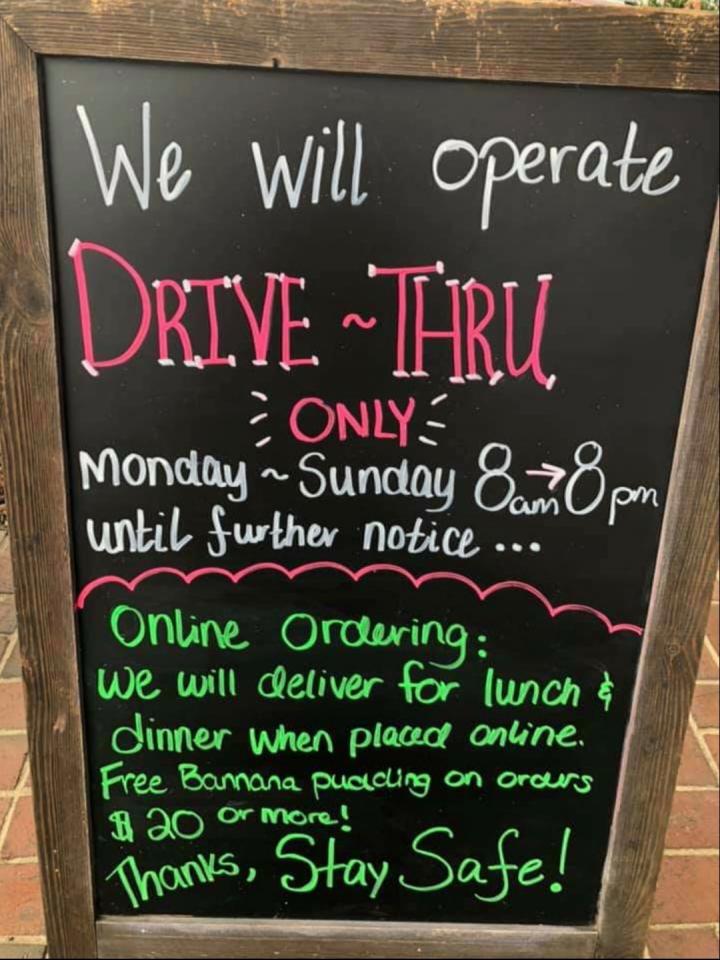 We will operate
DRIVE ~ THRU
ONLY
Monday ~ Sunday 8am → 8pm
until further notice ...
Online Ordering:
We will deliver for lunch &
dinner when placed online.
Free Bannana pudding on orders
$20 or more!
Thanks, Stay Safe!